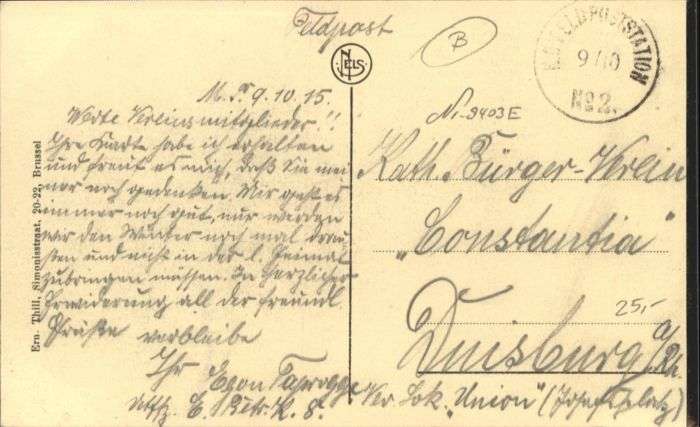 Feldpost
B
NELS
K.D. FELDPOSTSTATION
9/10
No 2.
9.10.15.
Nr. 9403E
Werte Vereinsmitglieder!!
Ihre Karte habe ich erhalten
und freut es mich, daß Sie mei
ner noch gedenken. Mir geht es
immer noch gut, nur werden
wir den Winter noch mal drau
ßen und nicht in der l. Heimat
zubringen müssen. In herzlicher
Erwiderung all der freundl.
Grüße verbleibe
Ihr
Egon
Uffz. E. Betr. K. 8.
Kath. Bürger-Verein
„Constantia"
25,-
Duisburg a/Rh.
Ver Lok. „Union" (Josefsplatz)
Ern. Thill, Simonisstraat, 20-22, Brussel